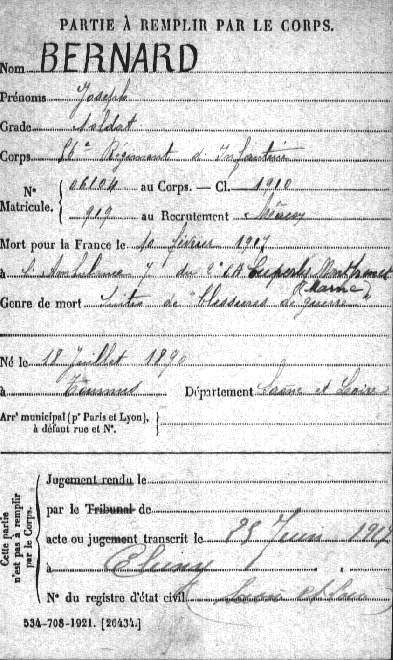 PARTIE À REMPLIR PAR LE CORPS.
Nom BERNARD
Prénoms Joseph
Grade Soldat
Corps Régiment d'Infanterie
Nº Matricule. 06104 au Corps. — Cl. 1910
919 au Recrutement Mâcon
Mort pour la France le 10 février 1917
à L'Ambulance 7 du 2e CA (Marne)
Genre de mort Suites de blessures de guerre
Né le 18 Juillet 1890
à Tournus Département Saône et Loire
Arrt municipal (pr Paris et Lyon),
à défaut rue et Nº.
Cette partie n'est pas à remplir par le Corps.
Jugement rendu le
par le Tribunal de
acte ou jugement transcrit le Juin 1917
à Cluny
Nº du registre d'état civil
534-708-1921. [26434.]